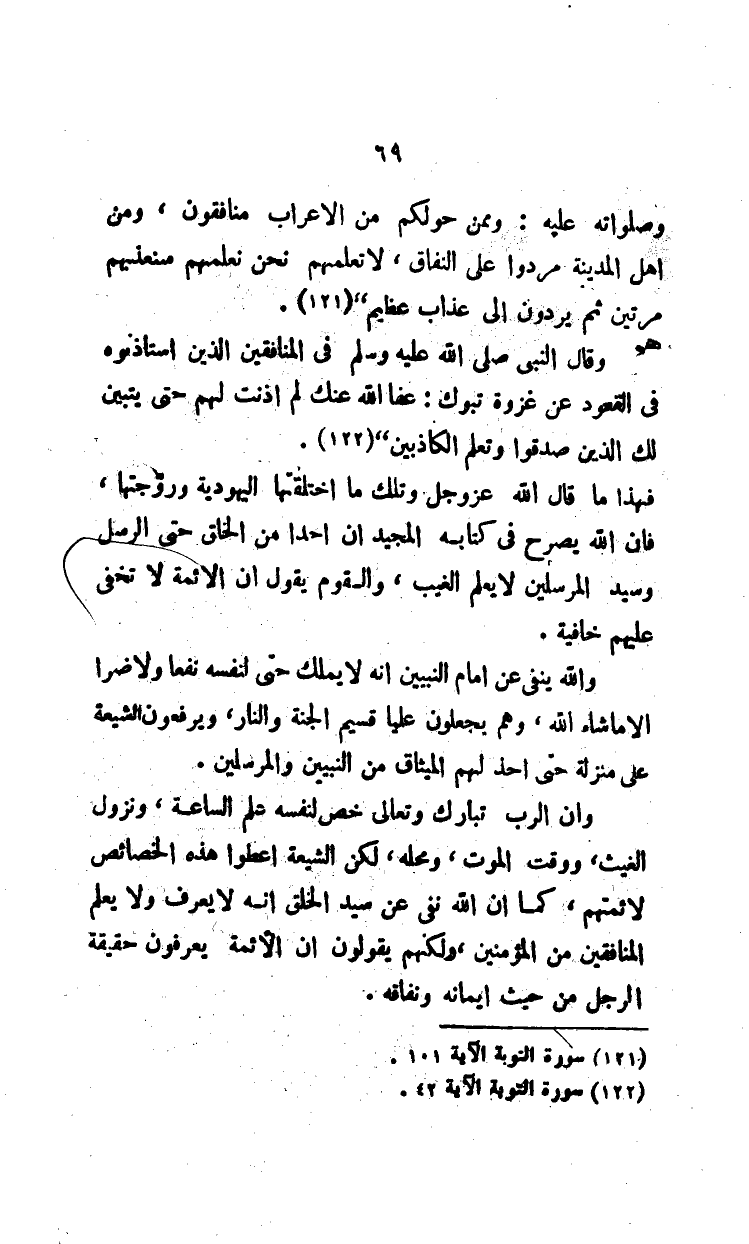 ٦٩
وصلواته عليه : وممن حولكم من الاعراب منافقون ، ومن
اهل المدينة مردوا على النفاق ، لاتعلمهم نحن نعلمهم سنعذبهم
مرتين ثم يردون الى عذاب عظيم“(١٢١) .
وقال النبى صلى الله عليه وسلم فى المنافقين الذين استاذنوه
فى القعود عن غزوة تبوك : عفا الله عنك لم اذنت لهم حتى يتبين
لك الذين صدقوا وتعلم الكاذبين“(١٢٢) .
فهذا ما قال الله عزوجل وتلك ما اختلقتها اليهودية وروّجتها ،
فان الله يصرح فى كتابه المجيد ان احدا من الخلق حتى الرسل
وسيد المرسلين لايعلم الغيب ، والقوم يقول ان الائمة لا تخفى
عليهم خافية .
والله ينفى عن امام النبيين انه لايملك حتّى لنفسه نفعا ولاضرا
الاماشاء الله ، وهم يجعلون عليا قسيم الجنة والنار، ويرفعون الشيعة
على منزلة حتّى احذ لهم الميثاق من النبيين والمرسلين .
وان الرب تبارك وتعالى خص لنفسه علم الساعة ، ونزول
الغيث، ووقت الموت ، ومحله ، لكن الشيعة اعطوا هذه الخصائص
لائمتهم ، كما ان الله نفى عن سيد الخلق انه لايعرف ولا يعلم
المنافقين من المؤمنين ،ولكنهم يقولون ان الآئمة يعرفون حقيقة
الرجل من حيث ايمانه ونفاقه .
(١٢١) سورة التوبة الآية ١٠١ .
(١٢٢) سورة التوبة الآية ٤٢ .